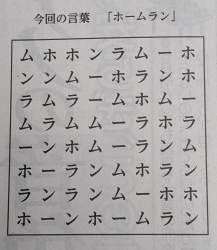 今回の言葉　「ホームラン」
ムホホンラムーホ
ンンムーホランホ
ラムラームホムー
ムラムムーラホラ
ーンホムーランム
ホーランムホラン
ランランムーホホ
ホーンホームラン